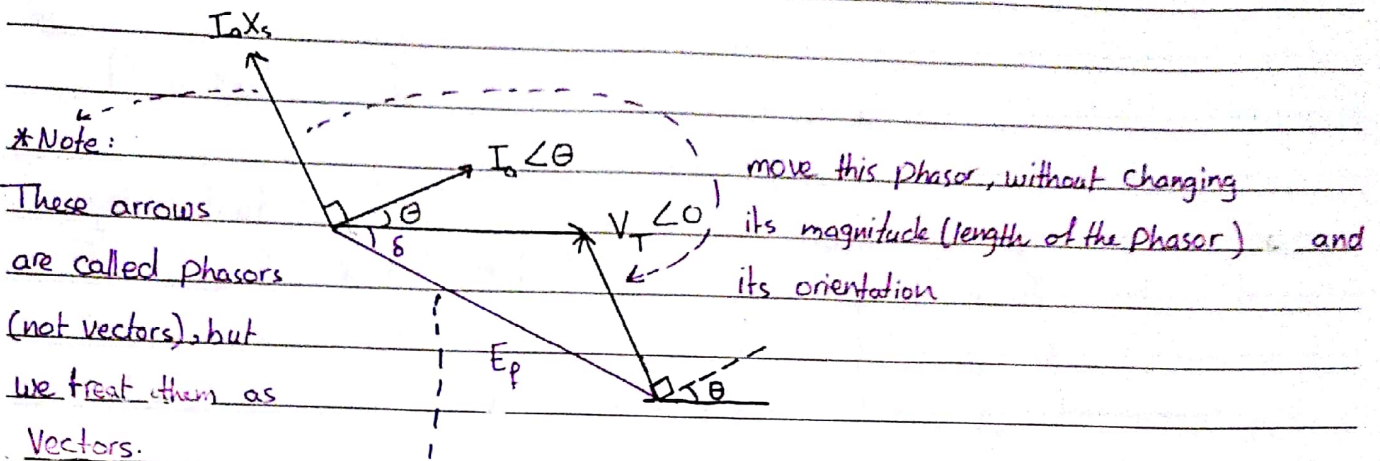 IₐXₛ
*Note:
These arrows
are called phasors
(not vectors), but
we treat them as
Vectors.
Iₐ ∠θ
θ
δ
V_T ∠0
E_f
θ
move this phasor, without changing
its magnitude (length of the phasor) and
its orientation